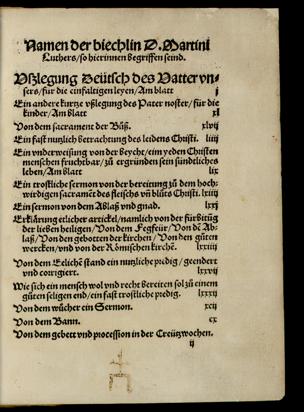 Namen der biechlin D. Martini
Luthers/so hierinnen begriffen seind.
Vßlegung Deütsch des Vatter vn-
sers/für die einfaltigen leyen/Am blatt j
Ein andere kurtze vßlegung des Pater noster/für die
kinder/Am blatt xl
Von dem sacrament der Bůß. xlvij
Ein fast nutzlich betrachtung des leidens Christi. liiij
Ein vnderweisung von der beycht/eim yeden Christen
menschen fruchtbar/zů ergründen sein sündtliches
leben/Am blatt lix
Ein trostliche sermon von der bereitung zů dem hoch-
wirdigen sacramēt des fleischs vñ blůts Christi. lxiiij
Ein sermon von dem Ablaß vnd gnad. lxxj
Erklärung etlicher artickel/namlich von der fürbitüg
der lieben heiligen/Von dem Fegfeür/Von dē Ab-
laß/Von den gebotten der kirchen/Von den gůten
wercken/vnd von der Römischen kirchē. lxxiij
Von dem Eelichē stand ein nutzliche predig/geendert
vnd corrigiert. lxxvij
Wie sich ein mensch wol vnd recht bereiten sol zů einem
gůten seligen end/ein fast trostliche predig. lxxxij
Von dem wůcher ein Sermon. xcij
Von dem Bann. cx
Von dem gebett vnd procession in der Creützwochen.
ij